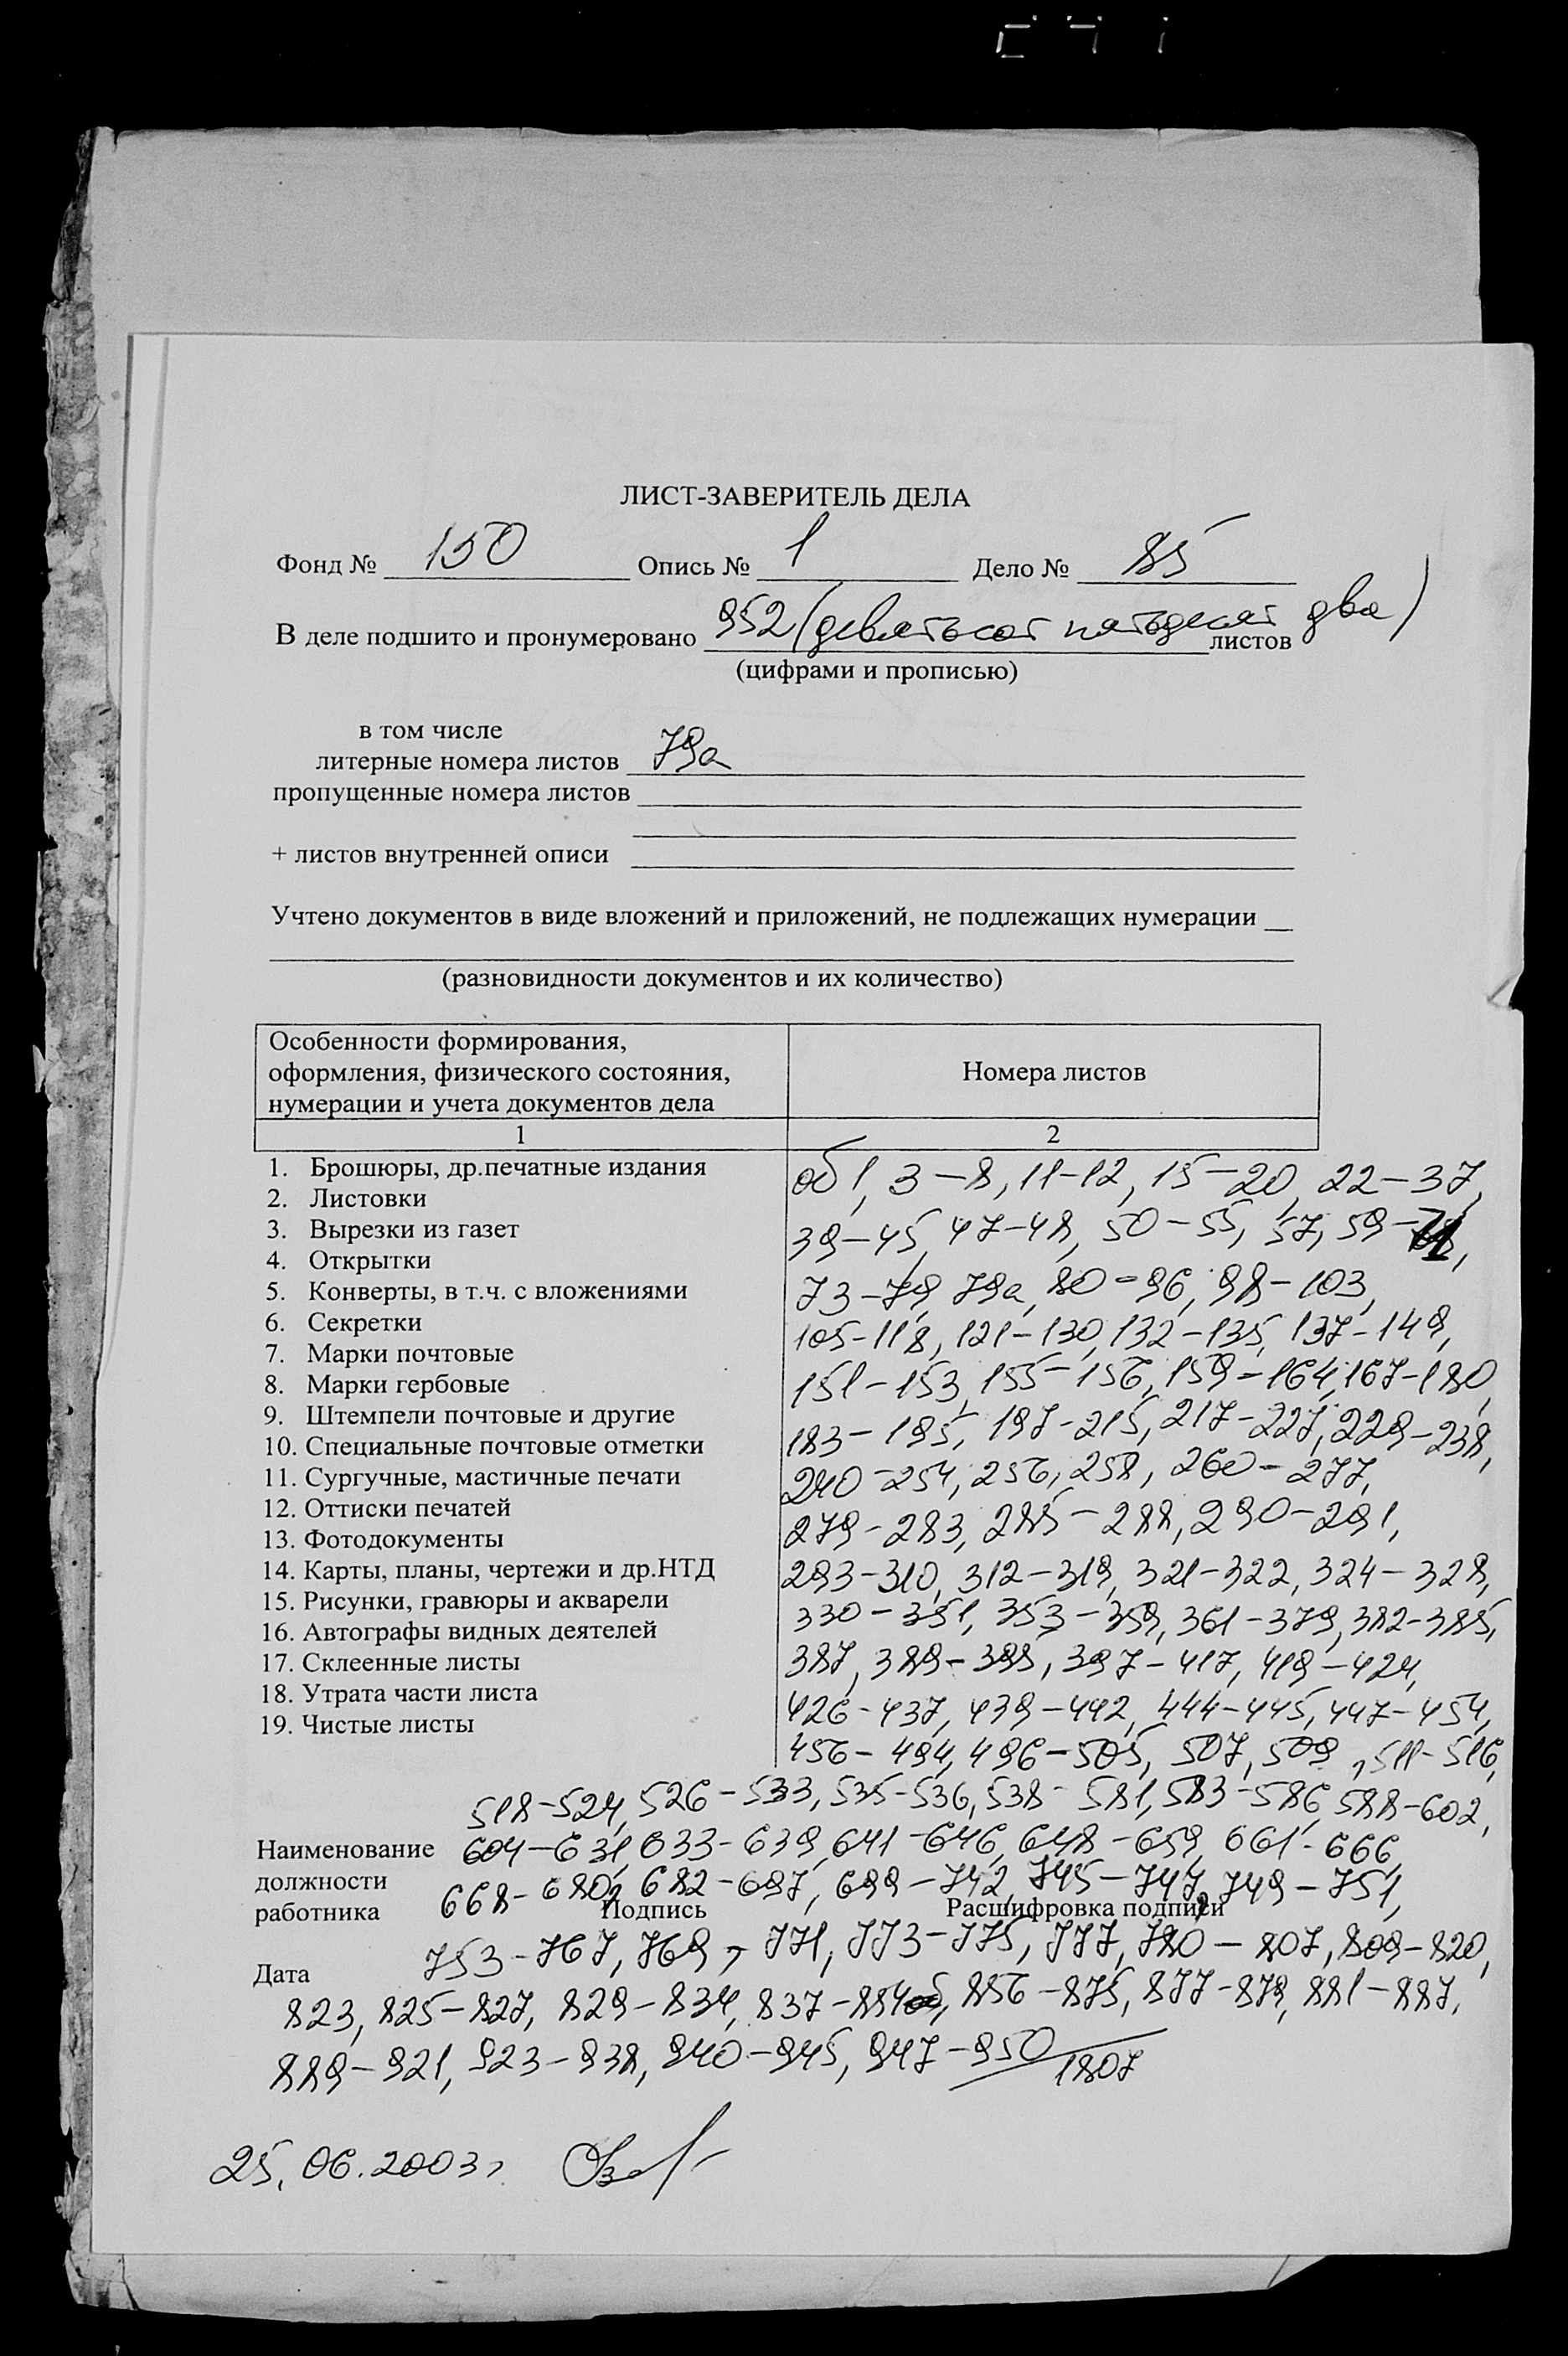 ЛИСТ-ЗАВЕРИТЕЛЬ ДЕЛА
Фонд № 150 Опись № 1 Дело № 85
В деле подшито и пронумеровано 952 (девятьсот пятьдесят два) листов
(цифрами и прописью)
в том числе
литерные номера листов 79а
пропущенные номера листов
+ листов внутренней описи
Учтено документов в виде вложений и приложений, не подлежащих нумерации
(разновидности документов и их количество)
Особенности формирования,
оформления, физического состояния,
нумерации и учета документов дела
Номера листов
1 2
1. Брошюры, др.печатные издания
2. Листовки
3. Вырезки из газет
4. Открытки
5. Конверты, в т.ч. с вложениями
6. Секретки
7. Марки почтовые
8. Марки гербовые
9. Штемпели почтовые и другие
10. Специальные почтовые отметки
11. Сургучные, мастичные печати
12. Оттиски печатей
13. Фотодокументы
14. Карты, планы, чертежи и др.НТД
15. Рисунки, гравюры и акварели
16. Автографы видных деятелей
17. Склеенные листы
18. Утрата части листа
19. Чистые листы
об 1, 3-8, 11-12, 15-20, 22-37,
39-45, 47-48, 50-55, 57, 59-71,
73-79, 79а, 80-96, 98-103,
105-118, 121-130, 132-135, 137-149,
151-153, 155-156, 159-164, 167-180,
183-195, 197-215, 217-227, 229-238,
240-254, 256, 258, 260-277,
279-283, 285-288, 290-291,
293-310, 312-319, 321-322, 324-328,
330-351, 353-359, 361-379, 382-385,
387, 389-395, 397-417, 419-424,
426-437, 439-442, 444-445, 447-454,
456-494, 496-505, 507, 509, 511-516,
518-524, 526-533, 535-536, 538-581, 583-586, 588-602,
Наименование 604-631, 633-639, 641-646, 648-659, 661-666,
должности
668-680, 682-697, 699-742, 745-747, 749-751,
работника Подпись Расшифровка подписи
753-767, 769, 771, 773-775, 777, 780-807, 809-820,
Дата
823, 825-827, 829-834, 837-854об, 856-875, 877-879, 881-887,
889-921, 923-938, 940-945, 947-950
1807
25.06.2003г.